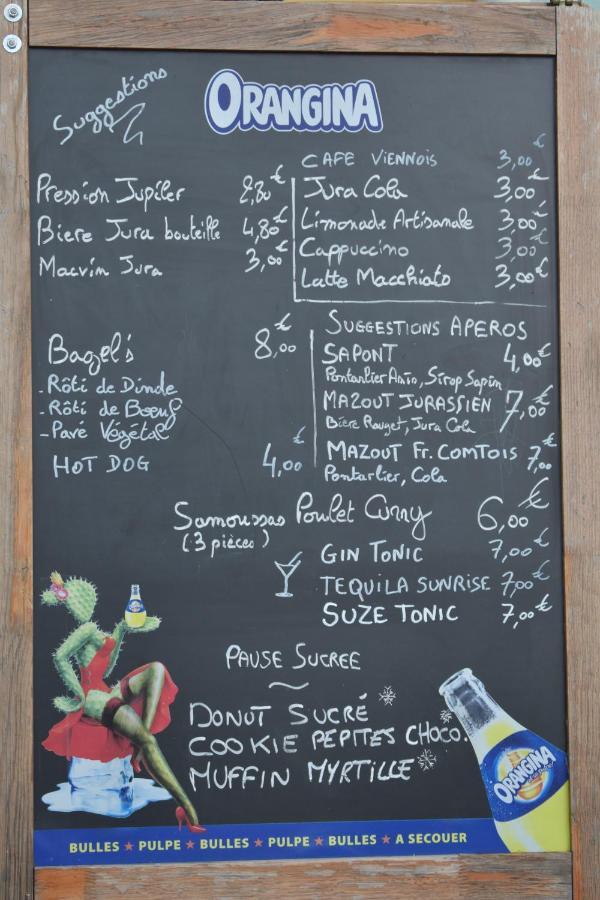 Suggestions
ORANGINA
CAFE VIENNOIS 3,00€
Pression Jupiler 2,80€
Jura Cola 3,00€
Biere Jura bouteille 4,80€
Limonade Artisanale 3,00€
Cappuccino 3,00€
Macvin Jura 3,00€
Latte Macchiato 3,00€
SUGGESTIONS APEROS
Bagel's 8,00€
SAPONT 4,00€
Pontarlier Anis, Sirop Sapin
- Rôti de Dinde
- Rôti de Boeuf
- Pavé Végétal
MAZOUT JURASSIEN 7,00€
Bière Rouget, Jura Cola
HOT DOG 4,00€
MAZOUT Fr. COMTOIS 7,00€
Pontarlier, Cola
Samoussas Poulet Curry 6,00€
(3 pièces)
GIN TONIC 7,00€
TEQUILA SUNRISE 7,00€
SUZE TONIC 7,00€
PAUSE SUCREE
DONUT SUCRÉ
COOKIE PEPITES CHOCO.
MUFFIN MYRTILLE
ORANGINA
BULLES ★ PULPE ★ BULLES ★ PULPE ★ BULLES ★ A SECOUER